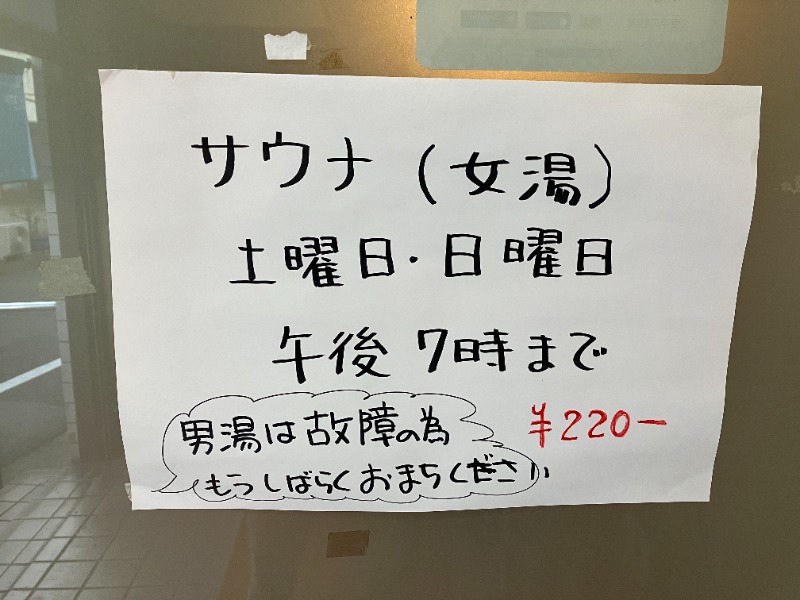 サウナ（女湯）
土曜日・日曜日
午後7時まで
¥220ー
男湯は故障の為
もうしばらくおまちください